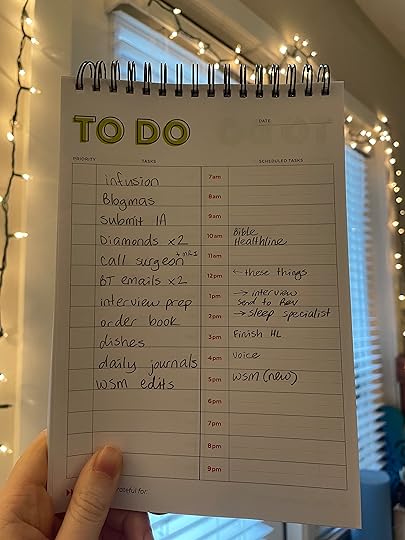 TO DO
DATE
PRIORITY TASKS SCHEDULED TASKS
infusion 7am
Blogmas 8am
Submit IA 9am
Diamonds x2 10am Bible
Healthline
call surgeon 11am
BT emails x2 12pm ← these things
interview prep 1pm → interview
send to Rev
order book 2pm → sleep specialist
dishes 3pm Finish HL
daily journals 4pm voice
WSM edits 5pm WSM (new)
6pm
7pm
8pm
9pm
grateful for: